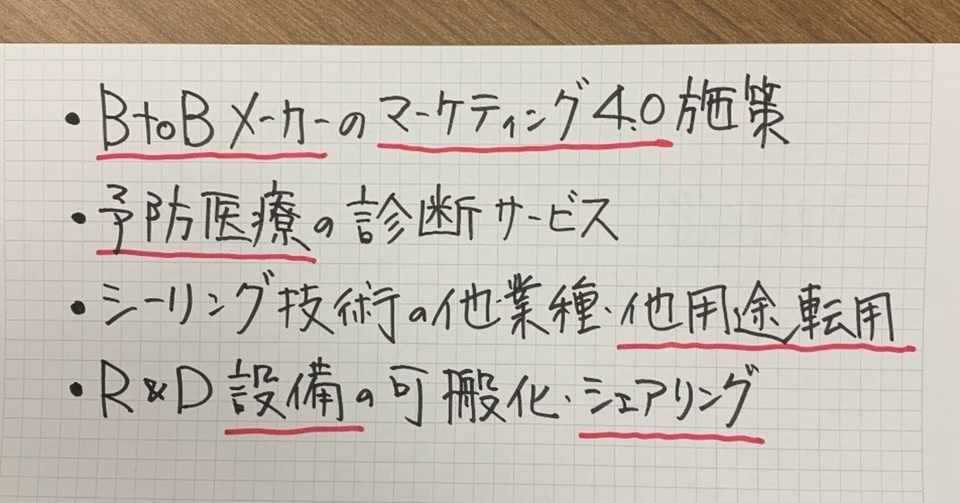 ・BtoBメーカーのマーケティング4.0施策
・予防医療の診断サービス
・シーリング技術の他業種・他用途転用
・R&D設備の可搬化・シェアリング